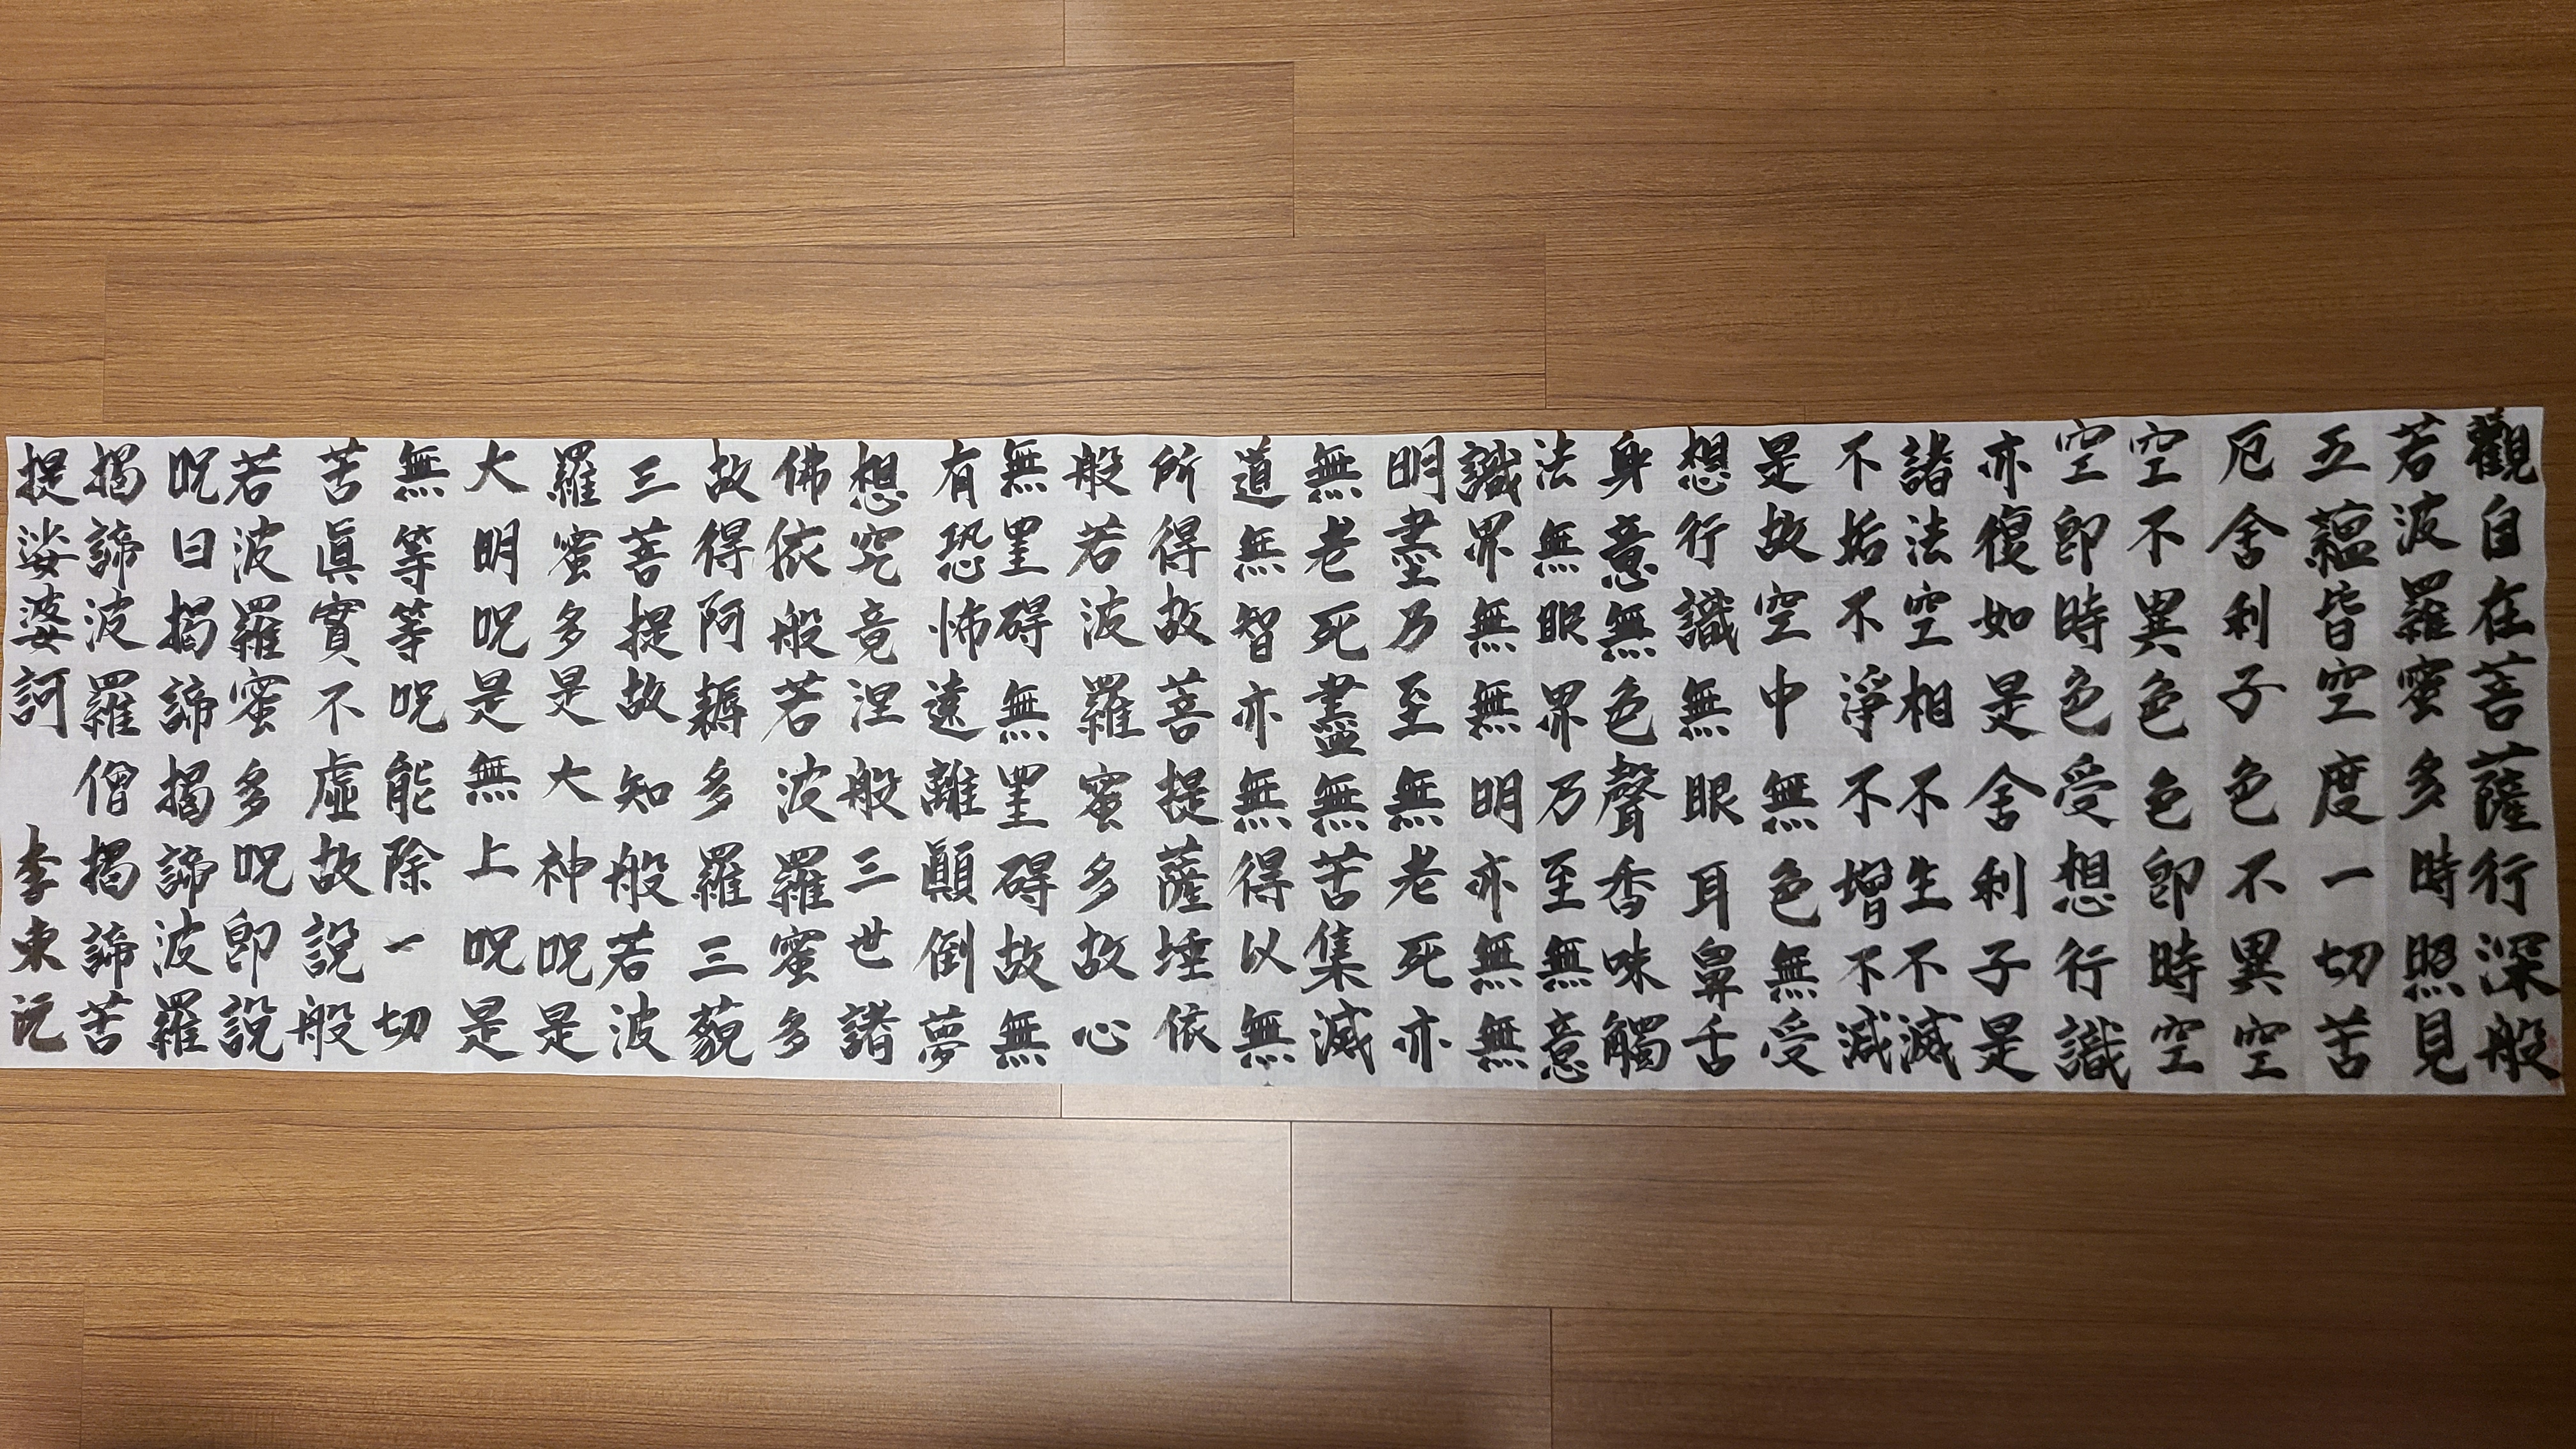 觀自在菩薩行深般
若波羅蜜多時照見
五蘊皆空度一切苦
厄舍利子色不異空
空不異色色即時空
空即時色受想行識
亦復如是舍利子是
諸法空相不生不滅
不垢不淨不增不減
是故空中無色無受
想行識無眼耳鼻舌
身意無色聲香味觸
法無眼界乃至無意
識界無無明亦無無
明盡乃至無老死亦
無老死盡無苦集滅
道無智亦無得以無
所得故菩提薩埵依
般若波羅蜜多故心
無罣碍無罣碍故無
有恐怖遠離顛倒夢
想究竟涅般三世諸
佛依般若波羅蜜多
故得阿耨多羅三藐
三菩提故知般若波
羅蜜多是大神呪是
大明呪是無上呪是
無等等呪能除一切
苦眞實不虛故說般
若波羅蜜多呪即說
呪曰揭諦揭諦波羅
揭諦波羅僧揭諦苦
提娑婆訶 李東沅